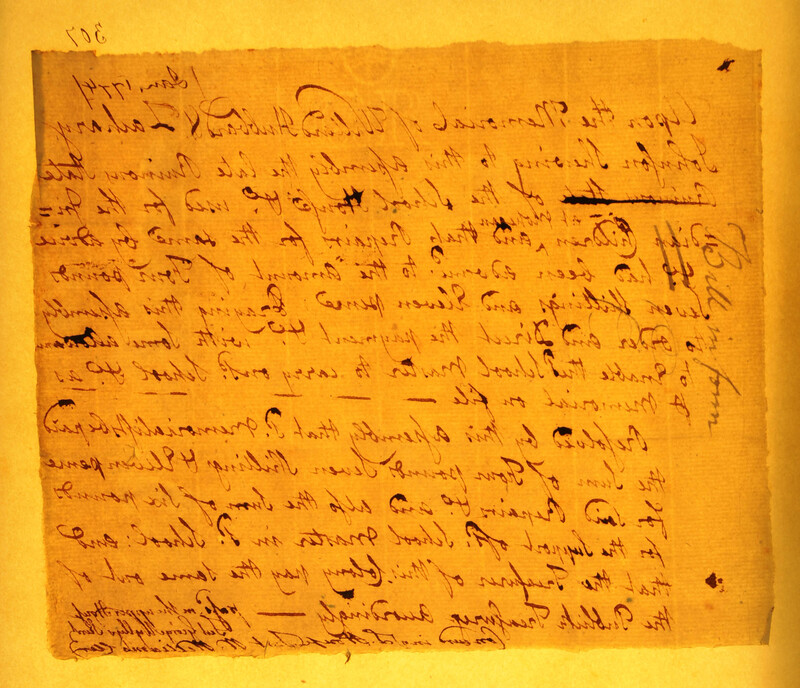 307
/Jan. 1774/
Upon the Memorial of Willard Hubbard & Zachary
Johnson Shewing to this Assembly the late Ruinous State
of the School House &c. used for the In=
dian Children at Mohegan and that Repairs for the same by Advice
&c. had been to the amount of Four pounds
Seven Shillings and Eleven pence Praying this Assembly
to Order and Direct the payment &c. with some addition
to Enable the School Master to carry on sd. School &c. as
Memorial on file
Resolved by this Assembly that sd. Memorialists be paid
the Sum of Four pounds Seven Shillings & Eleven pence
for said Repairs &c. and also the Sum of Six pounds
for the Support of sd. School Master in sd. School and
that the Treasurer of this Colony pay the same out of
the Publick Treasury accordingly
Pass'd in the upper House
Test George Wyllys
in the
Bill in form